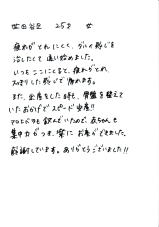 世田谷区 25才 女
疲れがとれにくく、ダルイ感じを
治したくて通い始めました。
いつもここにくると、疲れがとれ、
スッキリした感じで帰れます。
また、出産をした時も、骨盤を整えて
いたおかげでスピード出産!!
も飲んでいたので、赤ちゃんも
集中力がつき、楽に お産ができました。
感謝しています。ありがとうございました!!